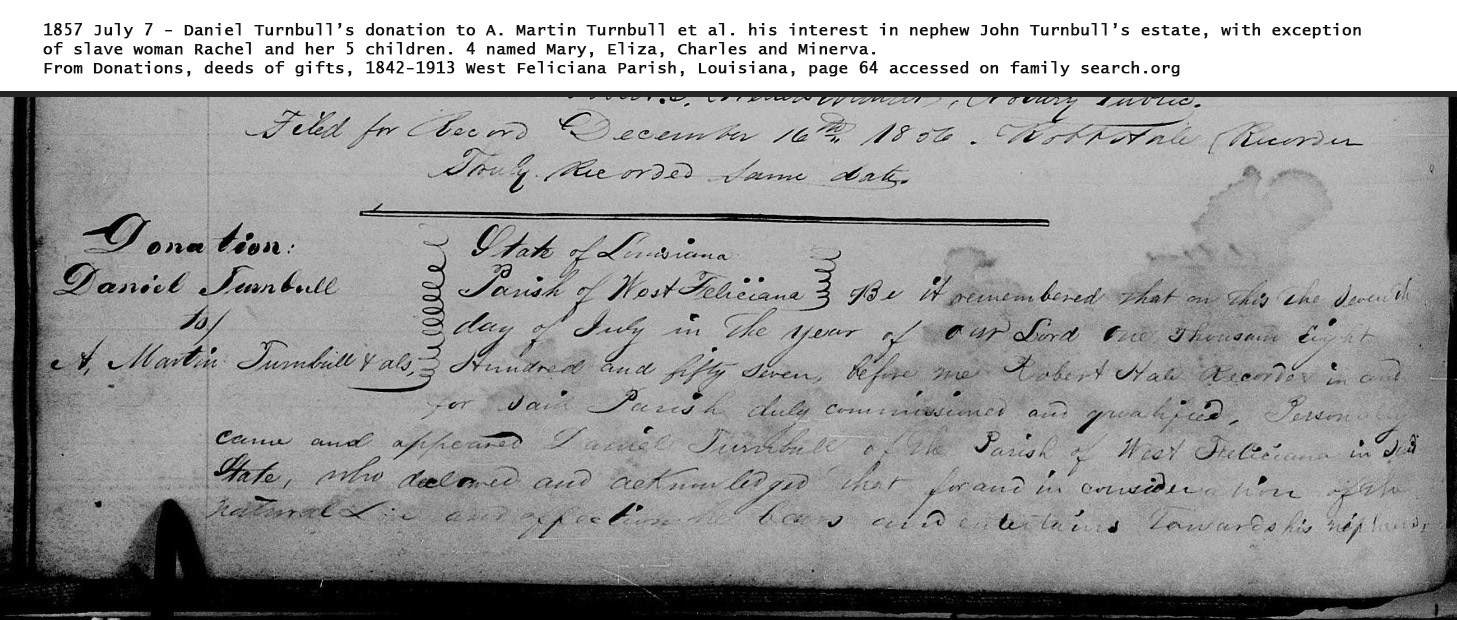 1857 July 7 – Daniel Turnbull’s donation to A. Martin Turnbull et al. his interest in nephew John Turnbull’s estate, with exception
of slave woman Rachel and her 5 children. 4 named Mary, Eliza, Charles and Minerva.
From Donations, deeds of gifts, 1842-1913 West Feliciana Parish, Louisiana, page 64 accessed on family search.org
Notary Public.
Filed for Record December 16th 1856. Robt Hale Recorder
Truly Recorded same date.
Donation:
Daniel Turnbull
to/
A, Martin Turnbull & als,
State of Louisiana
Parish of West Feliciana Be it remembered that on this the Seventh
day of July in the year of our Lord One Thousand Eight
Hundred and fifty Seven, before me Robert Hale Recorder in and
for said Parish duly commissioned and qualified, Personally
came and appeared Daniel Turnbull of the Parish of West Feliciana in said
State, who declared and acknowledged that for and in consideration of the
natural and affection he bears and entertains Towards his